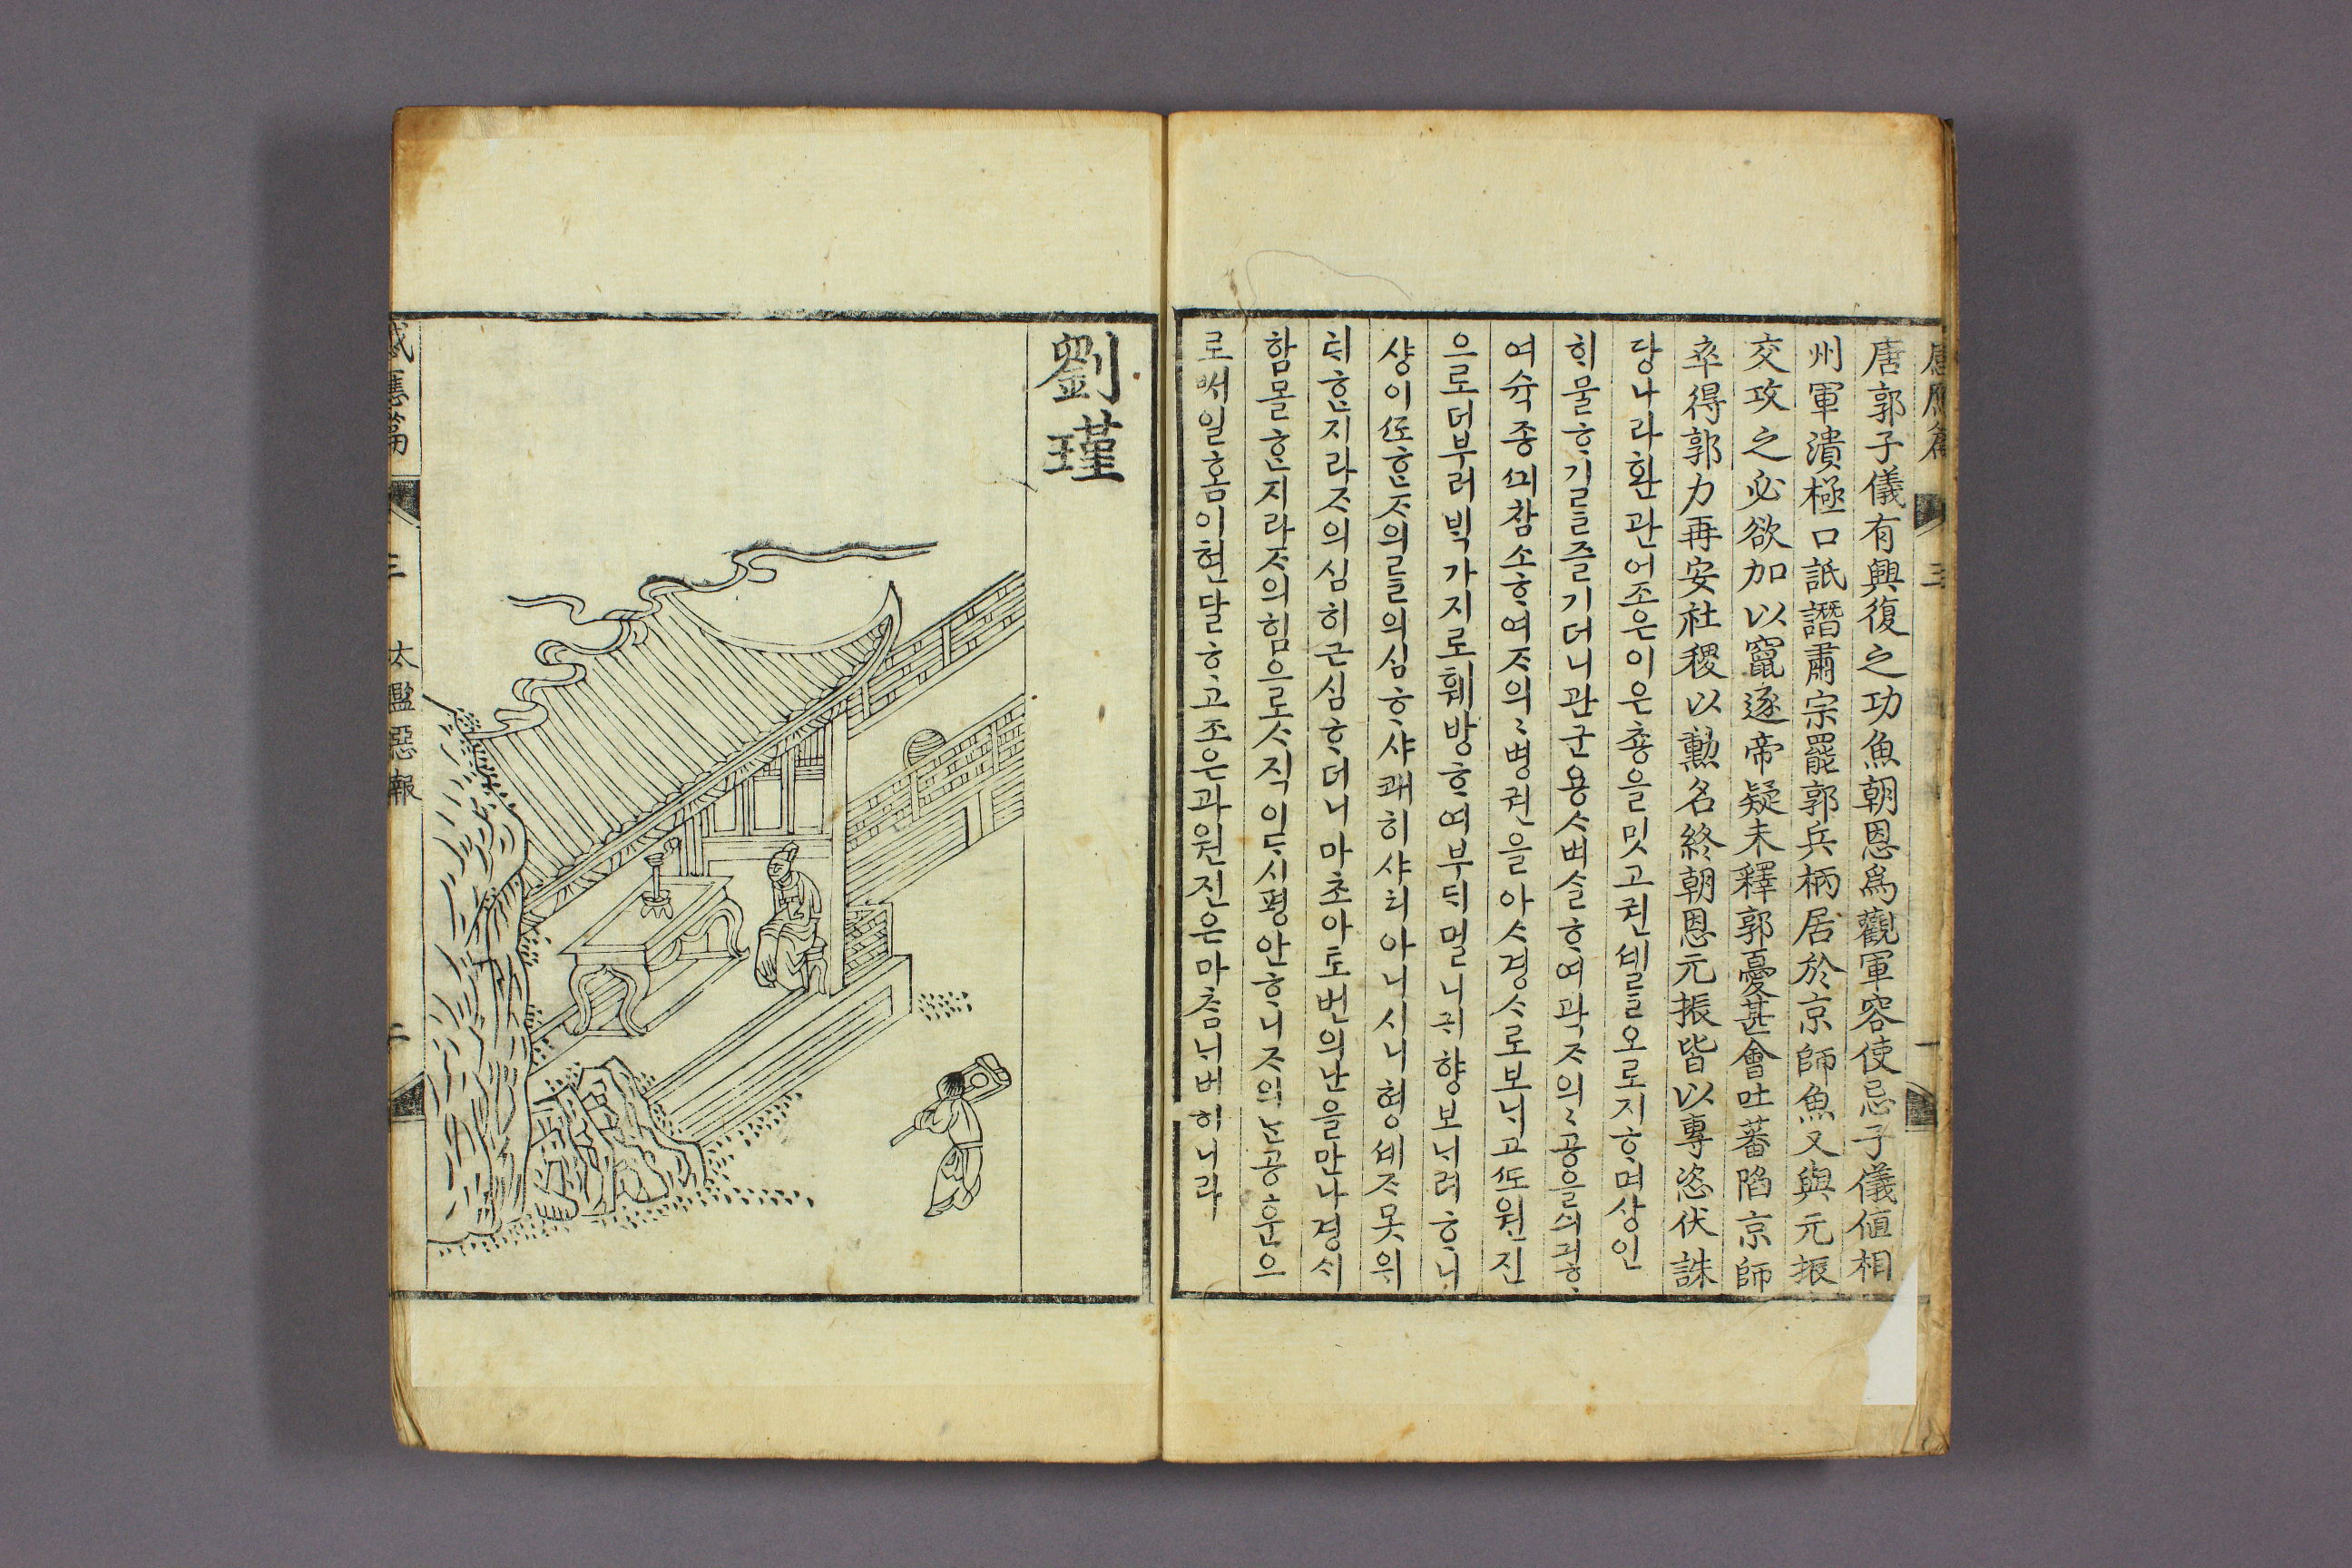 感應篇 三 一
唐郭子儀有興復之功魚朝恩爲觀軍容使忌子儀値相
州軍潰極口詆譖肅宗罷郭兵柄居於京師魚又與元振
交攻之必欲加以竄逐帝疑未釋郭憂甚會吐蕃陷京師
卒得郭力再安社稷以勳名終朝恩元振皆以專恣伏誅
당나라환관어조은이은춍을밋고권셰를오로지ᄒᆞ며샹인
ᄒᆡ물ᄒᆞ기를즐기더니관군용ᄉᆞ벼ᄉᆞᆯᄒᆞ여곽ᄌᆞ의〻공을싀긔ᄒᆞ
여슉종ᄭᅴ참소ᄒᆞ여ᄌᆞ의〻병권을아ᄉᆞ경ᄉᆞ로보ᄂᆡ고ᄯᅩ원진
으로더부러ᄇᆡᆨ가지로훼방ᄒᆞ여부ᄃᆡ멀니귀향보ᄂᆡ려ᄒᆞ니
샹이ᄯᅩᄒᆞᆫᄌᆞ의를의심ᄒᆞ샤쾌히샤ᄒᆡ아니시니형셰ᄌᆞ못위
ᄐᆡᄒᆞᆫ지라ᄌᆞ의심히근심ᄒᆞ더니마초아토번의난을만나경ᄉᆡ
함몰ᄒᆞᆫ지라ᄌᆞ의힘으로ᄉᆞ직이다시평안ᄒᆞ니ᄌᆞ의ᄂᆞᆫ공훈으
로ᄡᅥ일홈이현달ᄒᆞ고조은과원진은마ᄎᆞᆷᄂᆡ버히니라
劉瑾
感應篇 三 太監惡報 二